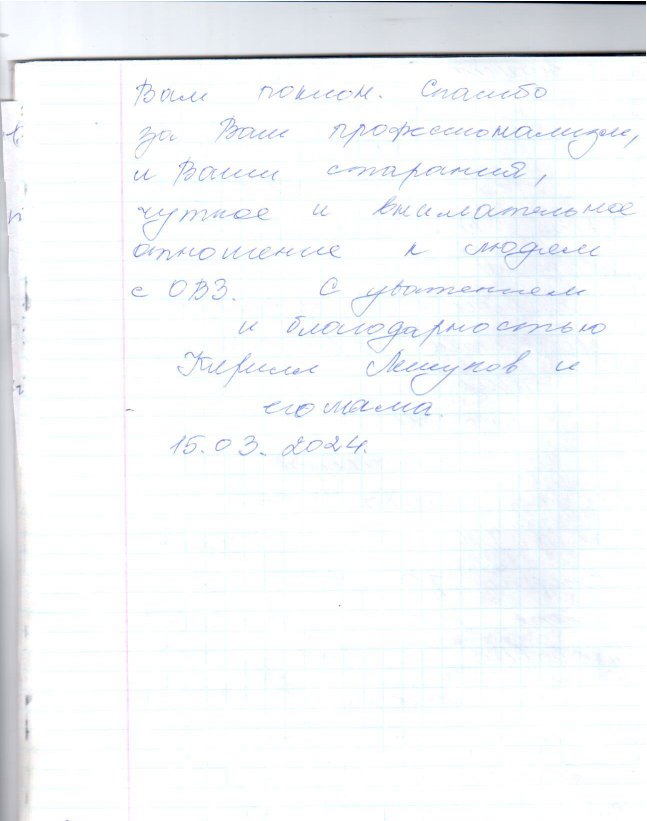 Вам поклон. Спасибо
за Ваш профессионализм,
и Ваши старания,
чуткое и внимательное
отношение к людям
с ОВЗ. С уважением
и благодарностью
Кирилл и
его мама.
15.03.2024.